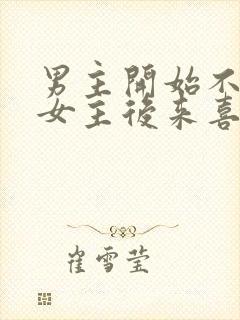 男主開始不
女主後来喜
崔雪莹